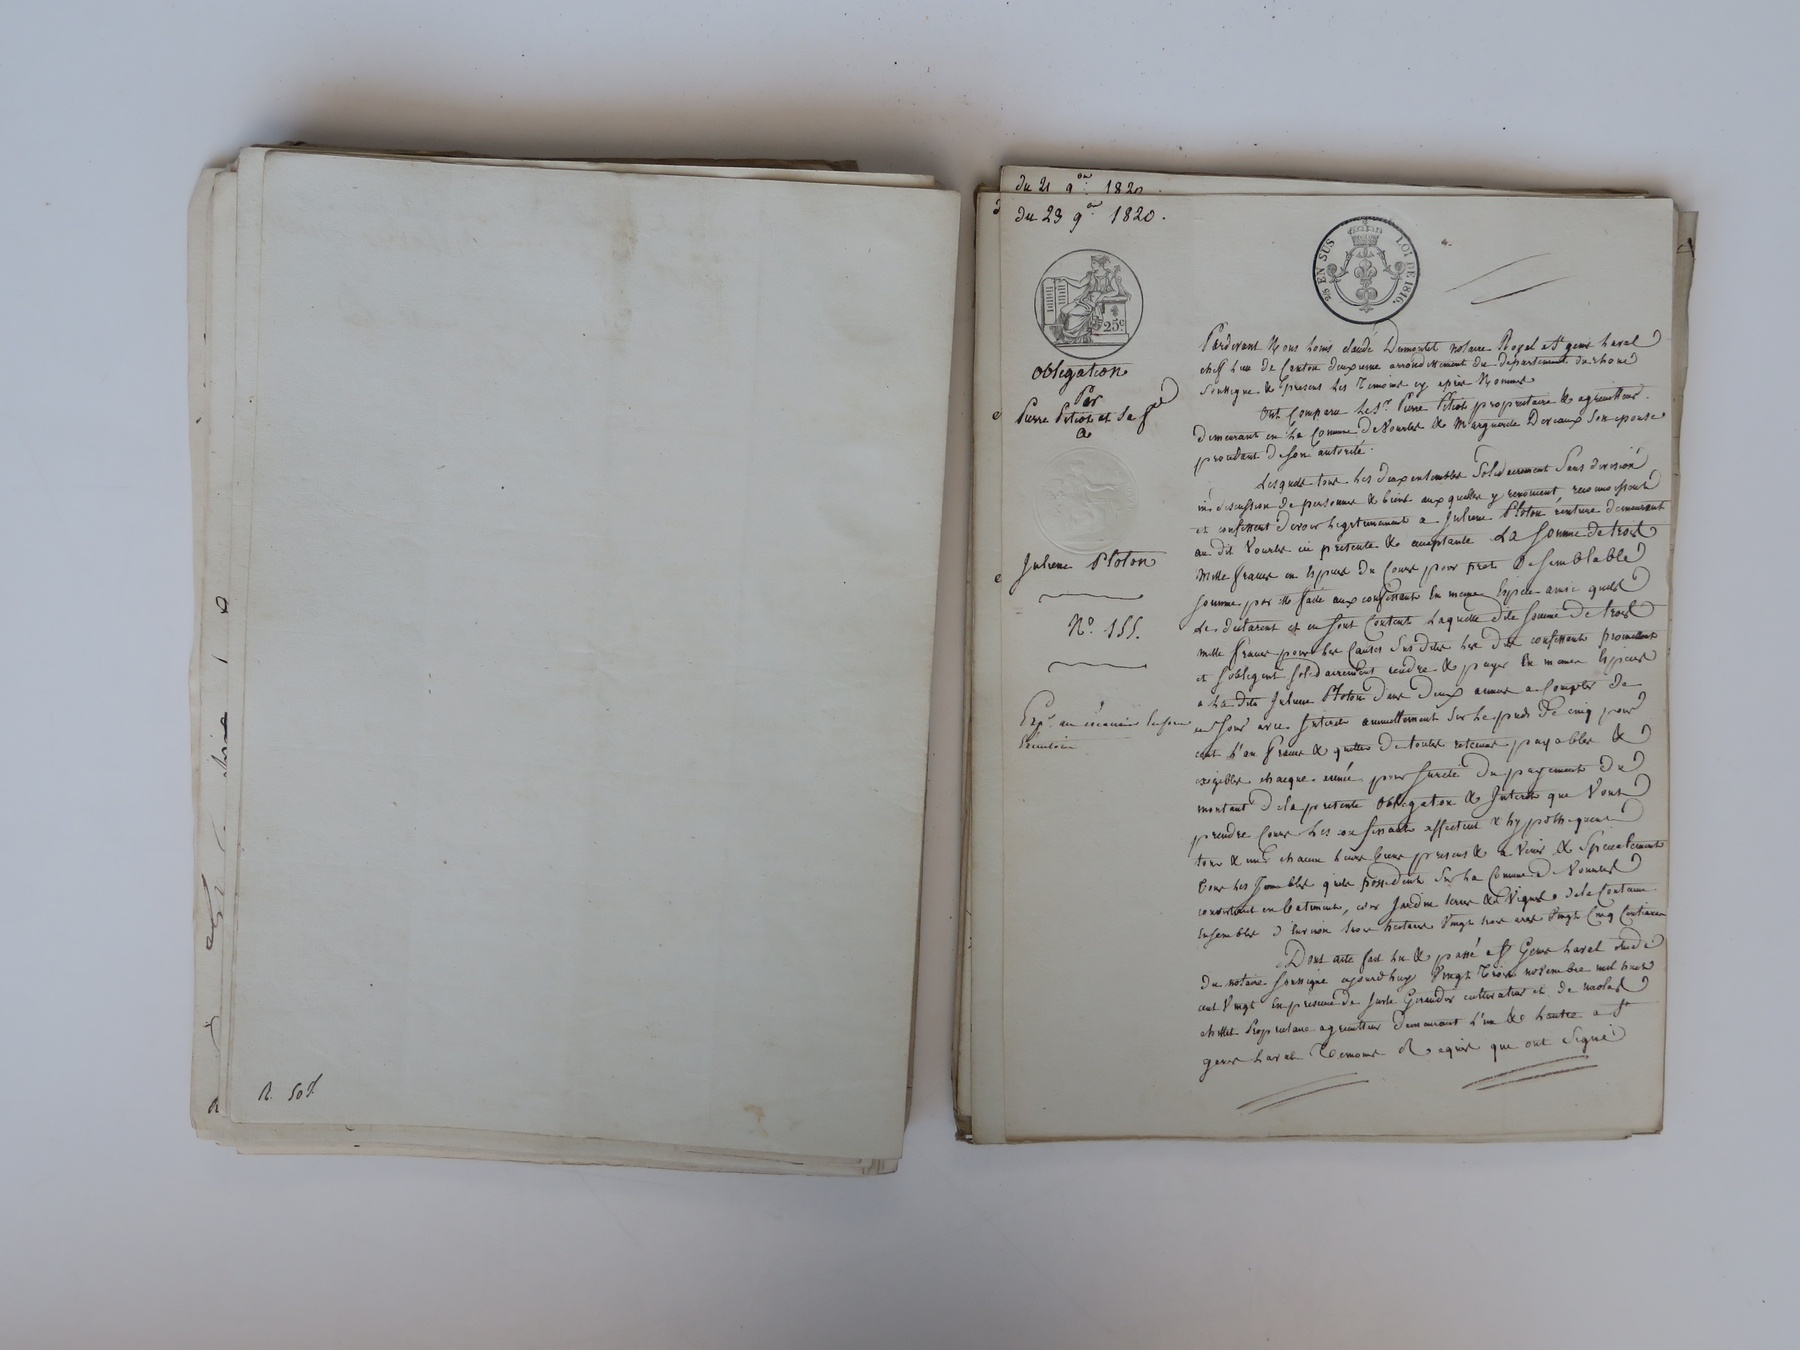 R. 50f
du 21 9bre 1820.
du 23 9bre 1820.
25c
25 EN SUS LOI DE 1816.
obligation
Par
Pierre Pitiot et sa fe
a
Julienne Ploton
N°. 155.
Expe au créancier
Pardevant Nous Louis Claude Dumortel notaire Royal a St genis Laval
chef lieu de Canton deuxieme arrondissement du departement du rhone
soussigné & presens les Temoins cy après Nommés
Ont Comparu le Sr. Pierre Pitiot proprietaire & agriculteur
demeurant en la Comune de Vourles & Marguerite Deveaux son epouse
procedant de son autorité.
Lesquels tous les deux ensembles solidairement sans division
ni discussion de personnes & biens auxquelles y renoncent reconnoissent
et confessent devoir legitimement a Julienne Ploton rentiere demeurant
au dit Vourles ici presente & acceptante La somme de trois
mille francs en especes du Cours pour pret de semblable
somme par elle faite aux confessants en meme espece ainsi quils
Le declarent et en sont Contents laquelle dite somme de trois
mille francs pour les Causes sus dites les dits confessants promettent
et s'obligent solidairement rendre & payer en meme especes
a la dite Julienne Ploton dans deux années a Compter de
ce jour avec Interets annuellement sur le pied de cinq pour
cent l'an francs & quittes de toutes retenues payables &
exigibles chaque année pour sureté du payement du
montant de la presente obligation & Interets que Vont
prendre Cours les confessants affectent & hypothequent
tous & uns chacun leurs biens presens & a Venir & Specialement
tous les Immeubles quils possedent sur la Comune de Vourles
consistant en batiments, cour Jardin terres & Vignes de la Contenue
Ensembles d'Environ trois hectares Vingt trois ares Vingt Cinq Centiares
Dont acte fait lu & passé a St Genis Laval etude
du notaire soussigné aujourd'huy Vingt Trois novembre mil huit
cent Vingt En presence de Giraudier cultivateur et de
proprietaire agriculteur demeurant l'un & l'autre a St
genis Laval Temoins Requis que ont signé